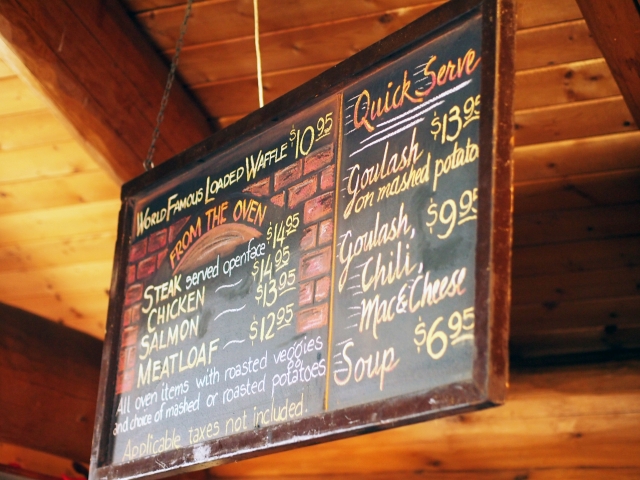 World Famous Loaded Waffle $10.95
FROM THE OVEN
STEAK served openface $14.95
CHICKEN ~ $14.95
SALMON $13.95
MEATLOAF ~ $12.95
All oven items with roasted veggies
and choice of mashed or roasted potatoes
Applicable taxes not included.
Quick Serve
$13.95
Goulash
on mashed potato
$9.95
Goulash,
Chili,
Mac & Cheese
$6.95
Soup